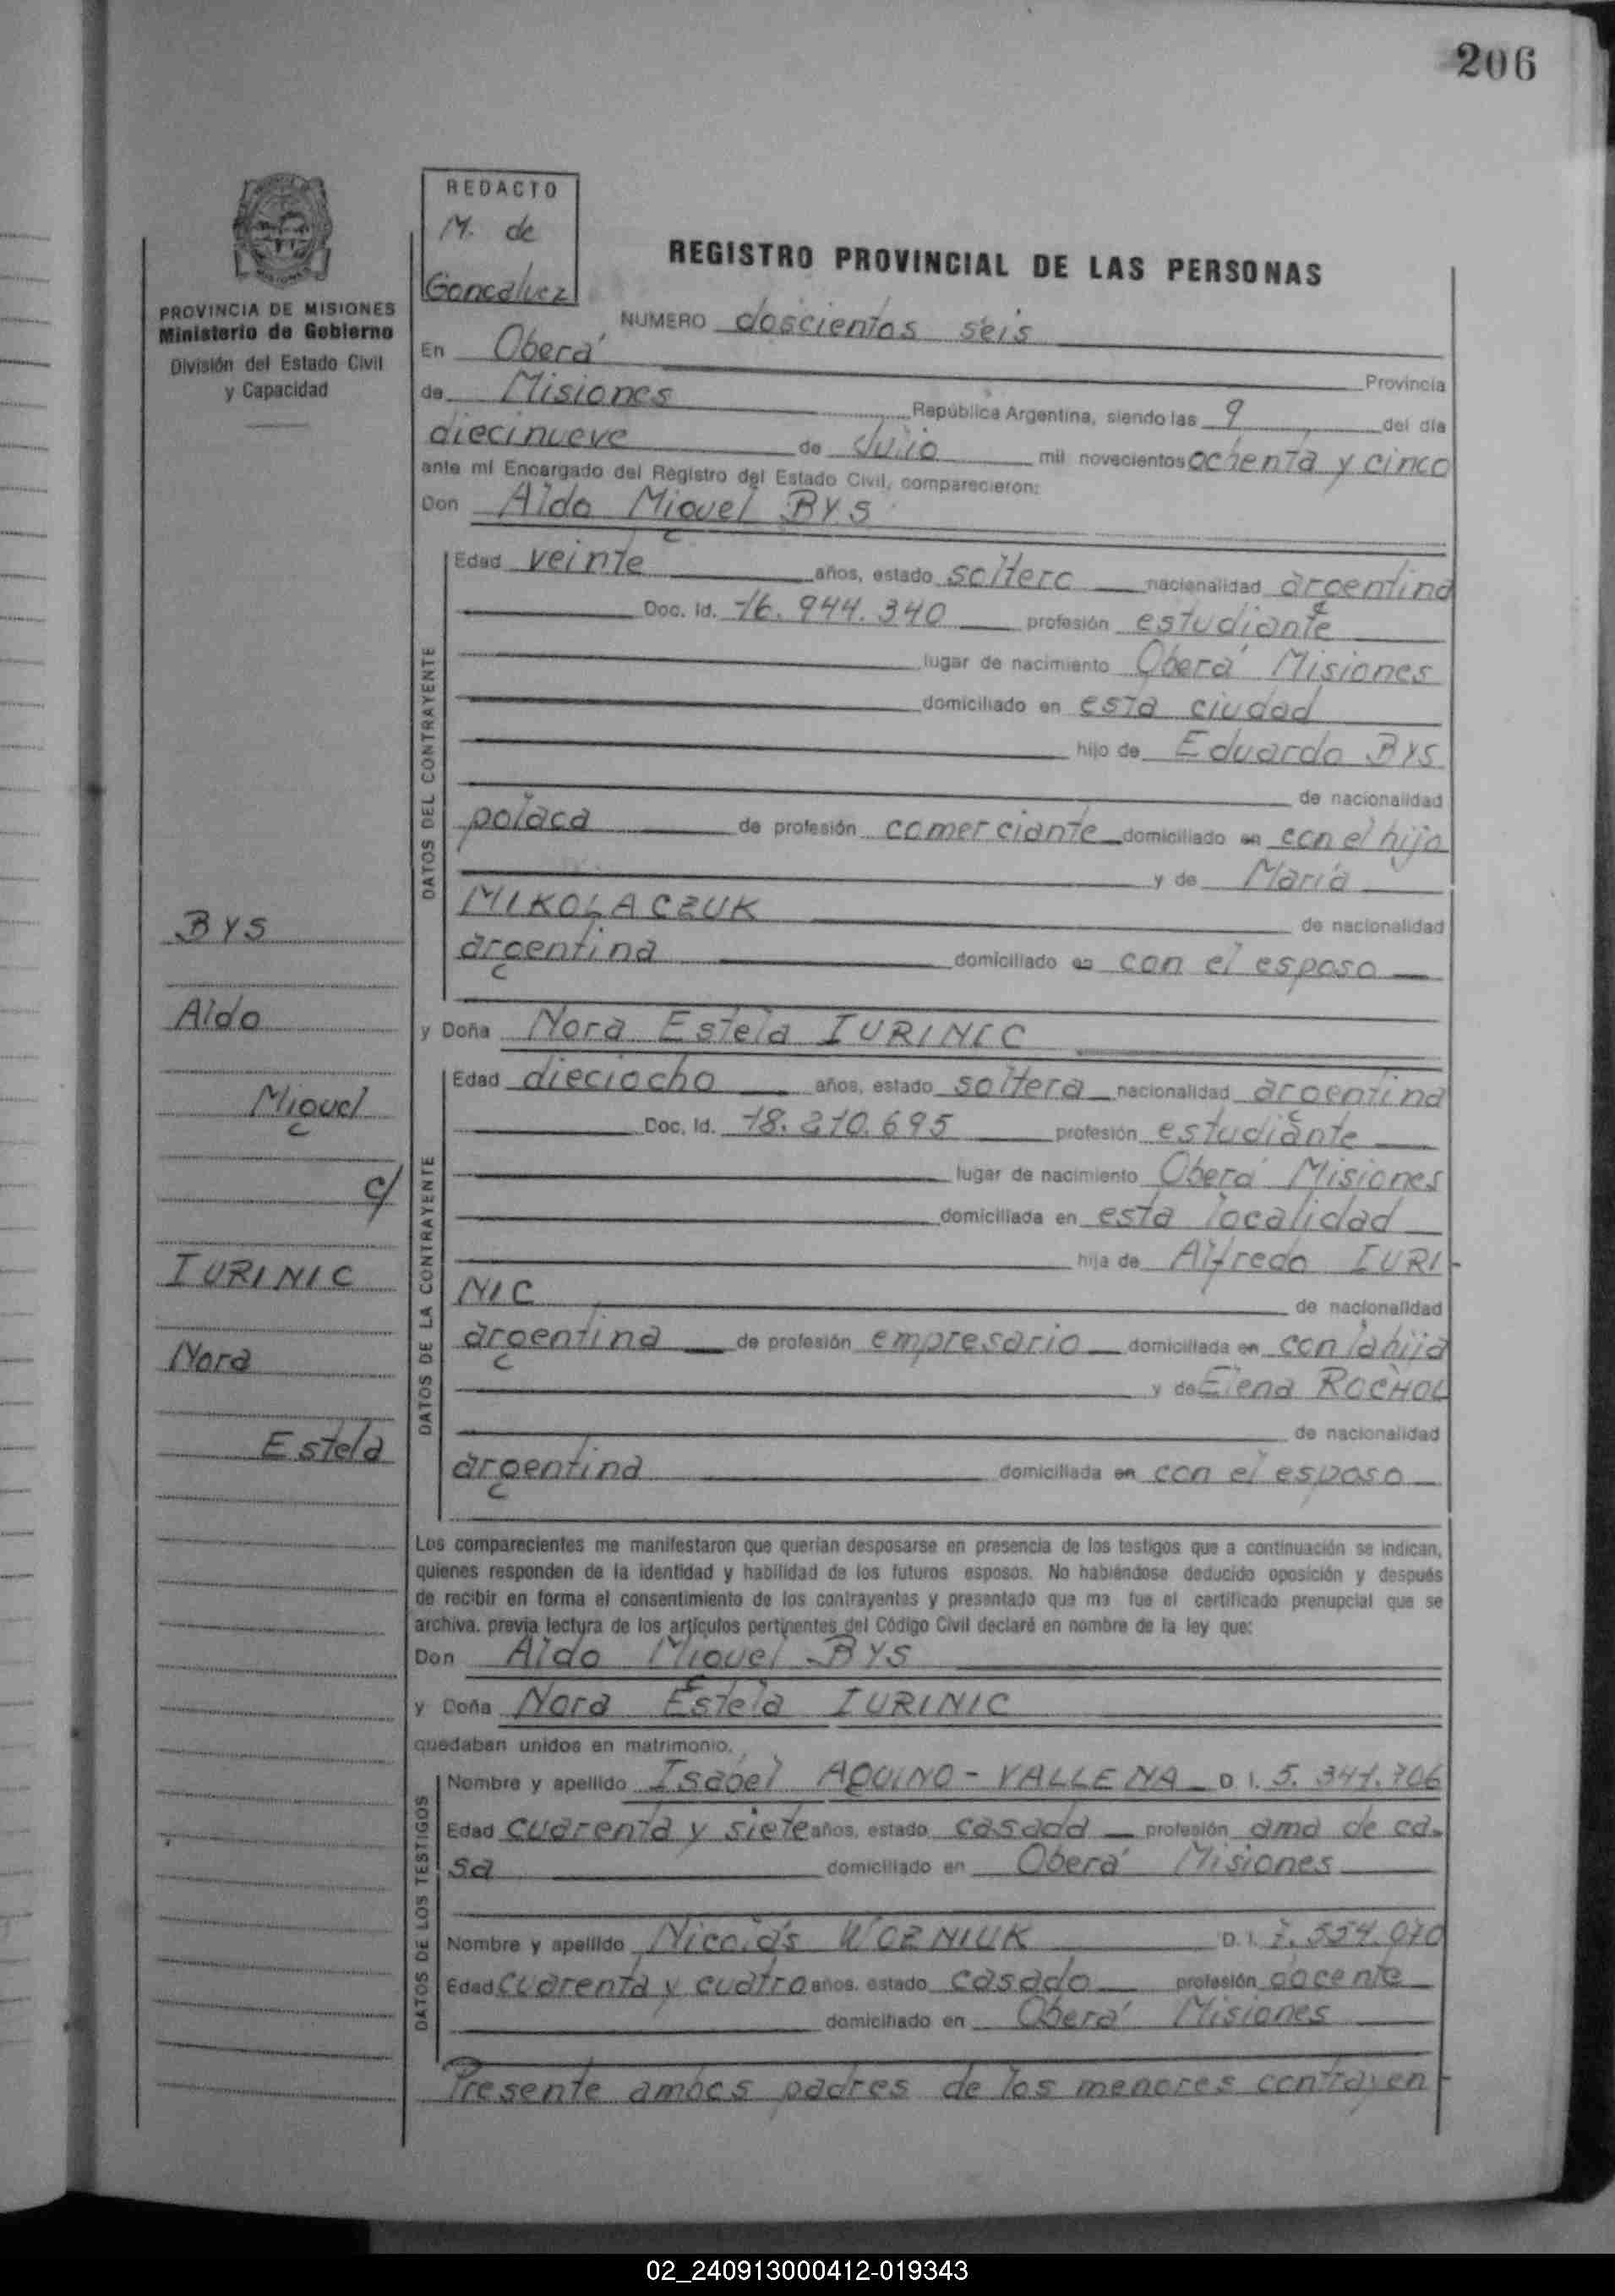 206
REDACTO
M. de
Goncalvez
REGISTRO PROVINCIAL DE LAS PERSONAS
PROVINCIA DE MISIONES
Ministerio de Gobierno
División del Estado Civil
y Capacidad
NUMERO doscientos seis
En Oberá Provincia
de Misiones República Argentina, siendo las 9 del día
diecinueve de Julio mil novecientos ochenta y cinco
ante mí Encargado del Registro del Estado Civil, comparecieron:
Don Aldo Miguel BYS
DATOS DEL CONTRAYENTE
Edad veinte años, estado soltero nacionalidad argentina
Doc. Id. 16.944.340 profesión estudiante
lugar de nacimiento Oberá Misiones
domiciliado en esta ciudad
hijo de Eduardo BYS
de nacionalidad
polaca de profesión comerciante domiciliado en con el hijo
y de María
MIKOLACZUK de nacionalidad
argentina domiciliado en con el esposo
y Doña Nora Estela IURINIC
DATOS DE LA CONTRAYENTE
Edad dieciocho años, estado soltera nacionalidad argentina
Doc. Id. 18.210.695 profesión estudiante
lugar de nacimiento Oberá Misiones
domiciliada en esta localidad
hija de Alfredo IURI-
NIC de nacionalidad
argentina de profesión empresario domiciliada en con la hija
y de Elena ROCHOL
de nacionalidad
argentina domiciliada en con el esposo
BYS
Aldo
Miguel
c/
IURINIC
Nora
Estela
Los comparecientes me manifestaron que querían desposarse en presencia de los testigos que a continuación se indican,
quienes responden de la identidad y habilidad de los futuros esposos. No habiéndose deducido oposición y después
de recibir en forma el consentimiento de los contrayentes y presentado que me fue el certificado prenupcial que se
archiva, previa lectura de los artículos pertinentes del Código Civil declaré en nombre de la ley que:
Don Aldo Miguel BYS
y Doña Nora Estela IURINIC
quedaban unidos en matrimonio.
DATOS DE LOS TESTIGOS
Nombre y apellido Isabel AQUINO - VALLENA D. I. 5.341.706
Edad cuarenta y siete años, estado casada profesión ama de ca-
sa domiciliado en Oberá Misiones
Nombre y apellido Nicolás WOZNIUK D. I. 7.554.070
Edad cuarenta y cuatro años, estado casado profesión docente
domiciliado en Oberá Misiones
Presente ambos padres de los menores contrayen-
02_240913000412-019343